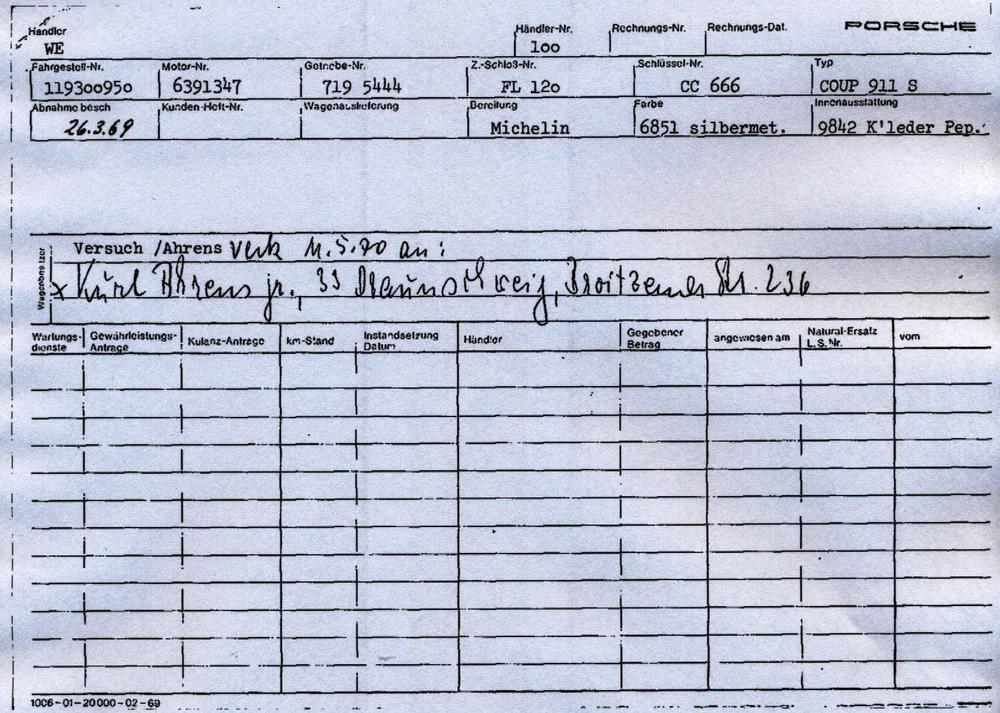 Händler Händler-Nr. Rechnungs-Nr. Rechnungs-Dat. PORSCHE
WE 100
Fahrgestell-Nr. Motor-Nr. Getriebe-Nr. Z.-Schloß-Nr. Schlüssel-Nr. Typ
119300950 6391347 719 5444 FL 120 CC 666 COUP 911 S
Abnahme besch Kunden-Heft-Nr. Wagenauslieferung Bereifung Farbe Innenausstattung
26.3.69 Michelin 6851 silbermet. 9842 K'leder Pep.
Versuch /Ahrens verk 11.5.70 an:
x Kurt Ahrens jr., 33 Braunschweig, Broitzemer Str. 236
Wartungs- Gewährleistungs- Kulanz-Antrage km-Stand Instandsetzung Händler Gegebener angewiesen am Natural-Ersatz vom
dienste Antrage Datum Betrag L.S.Nr.
1006-01-20000-02-69